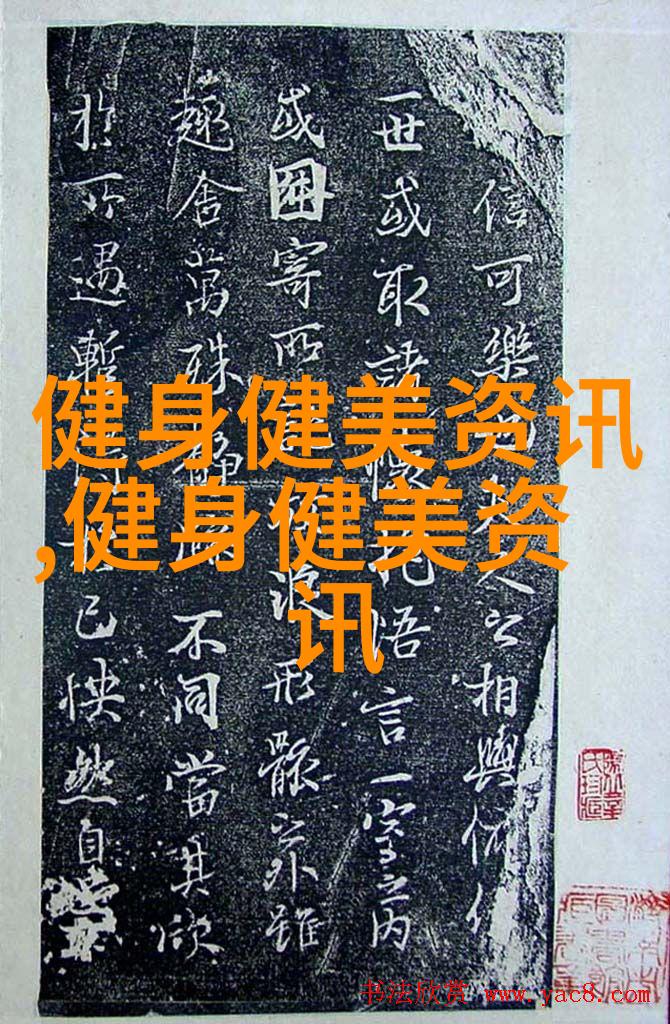 健身健美资讯
,健身健美资
讯
信可樂也夫人之相與俯仰
一世或取諸懷抱悟言一室之內
或因寄所託放浪形骸之外雖
趣舍萬殊靜躁不同當其欣
於所遇暫得於己怏然自
书法欣赏 www.yac8.com